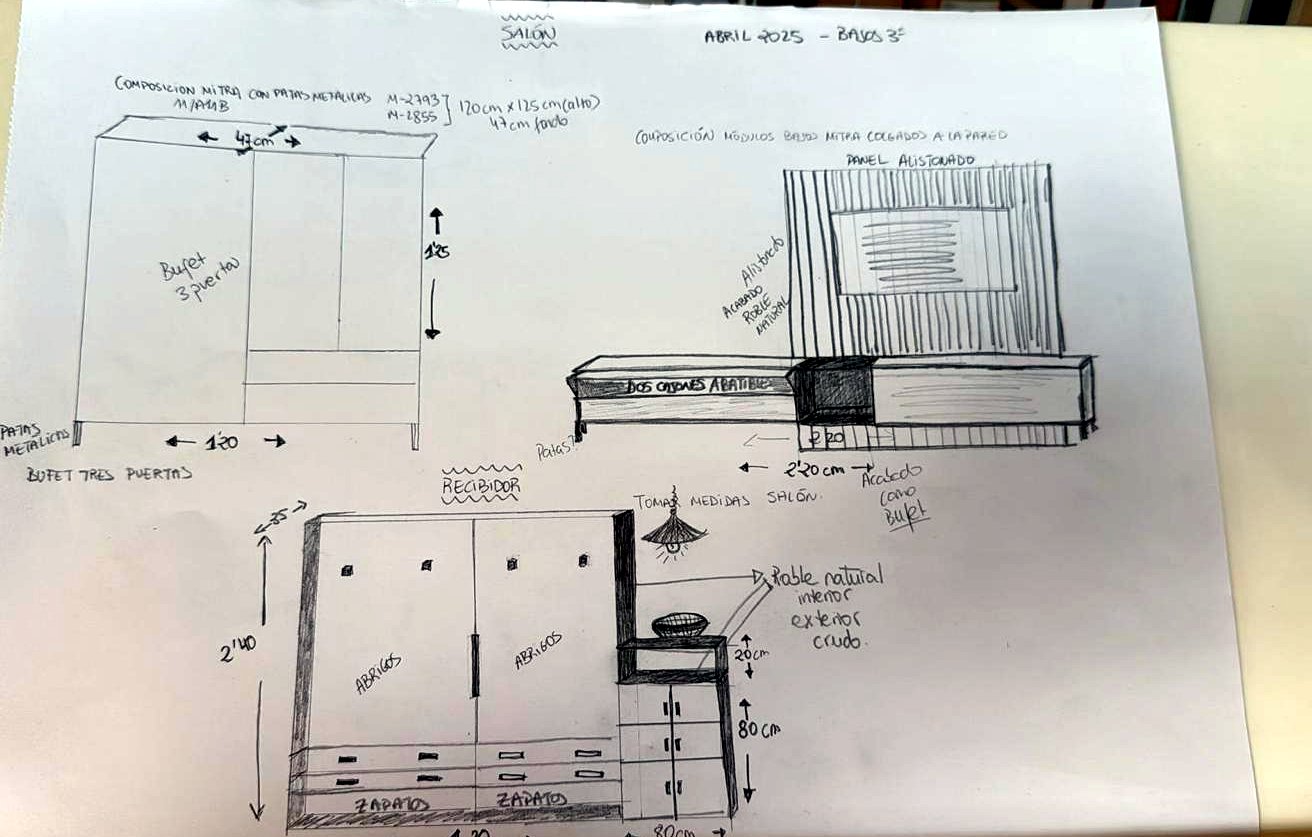 SALÓN
ABRIL 2025 - BAJOS 3ª
COMPOSICION MITRA CON PATAS METALICAS
M-2793
M-2855
120cm x 125cm (alto)
47cm fondo
47cm
Bufet
3 puertas
1'25
PATAS
METALICAS
1'20
BUFET TRES PUERTAS
COMPOSICIÓN MÓDULOS BAJOS MITRA COLGADOS A LA PARED
PANEL ALISTONADO
Alistonado
ACABADO
ROBLE
NATURAL
DOS CAJONES ABATIBLES
Patas?
220
2'20 cm
Acabado
como
Bufet
TOMAR MEDIDAS SALÓN.
RECIBIDOR
35
2'40
ABRIGOS
ABRIGOS
ZAPATOS
ZAPATOS
Roble natural
interior
exterior
crudo.
20cm
80cm
1'20
80cm